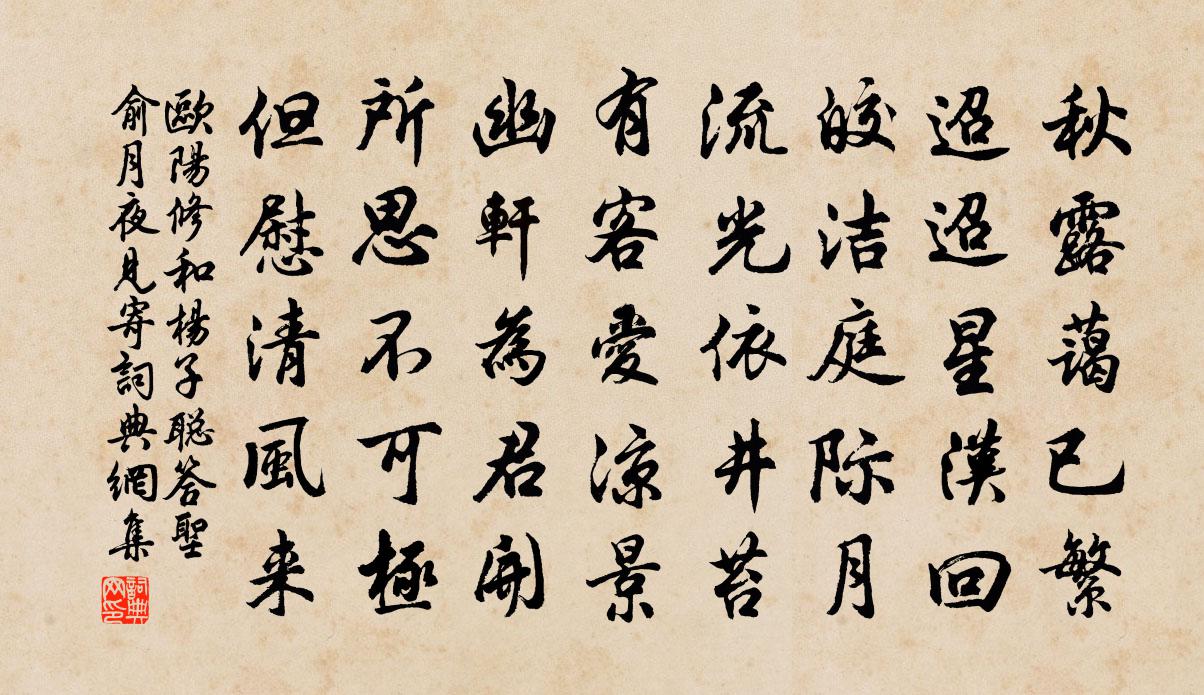 秋露藹已繁
迢迢星漢回
皎洁庭际月
流光依井苔
有客愛涼景
幽軒為君開
所思不可極
但慰清風来
歐陽修和楊子聡答聖
俞月夜見寄詞典網集
詞典
网印